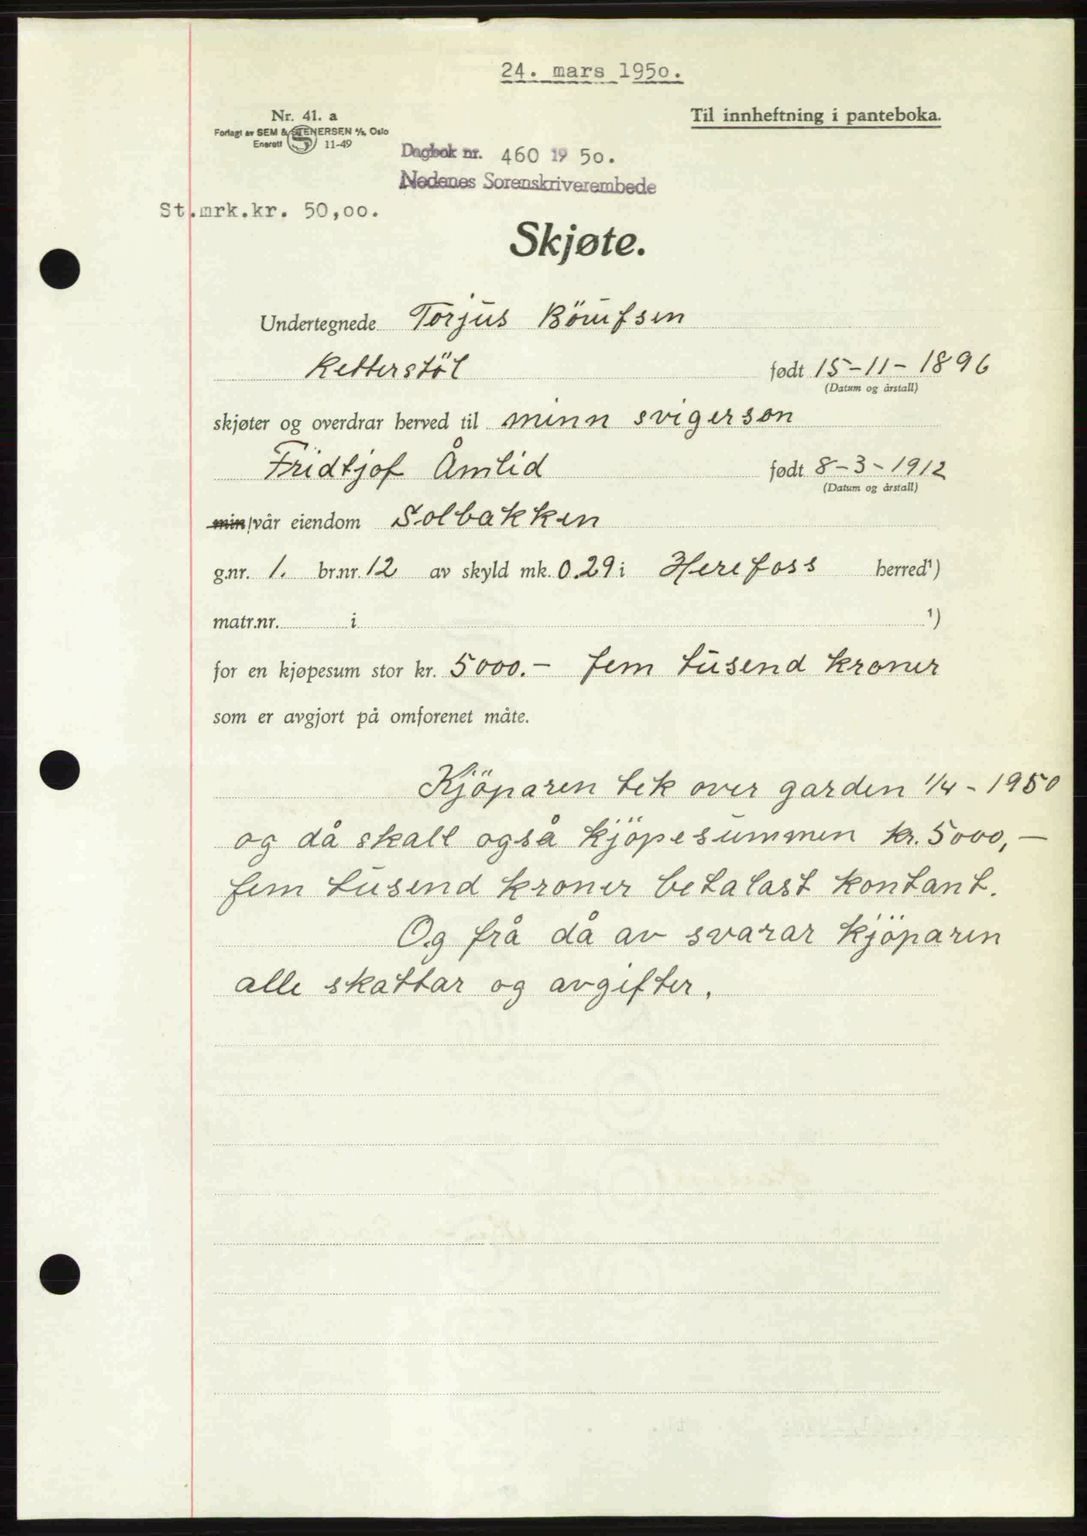 24. mars 1950.
Nr. 41. a
Forlagt av SEM & STENERSEN A/S, Oslo
Enerett 11-49
Til innheftning i panteboka.
Dagbok nr. 460 19 50.
Nedenes Sorenskriverembede
St.mrk.kr. 50,00.
Skjøte.
Undertegnede Torjus
Retterstöl født 15-11-1896
(Datum og årstall)
skjøter og overdrar herved til minn svigerson
Fridtjof Åmlid født 8-3-1912
(Datum og årstall)
min/vår eiendom Solbakken
g.nr. 1. br.nr. 12 av skyld mk. 0.29 i Herefoss herred¹)
matr.nr. i ¹)
for en kjøpesum stor kr. 5000.- fem tusend kroner
som er avgjort på omforenet måte.
Kjöparen tek over garden 1/4-1950
og då skall også kjöpesummen kr. 5000,-
fem tusend kroner betalast kontant.
Og frå då av svarar kjöparen
alle skattar og avgifter.